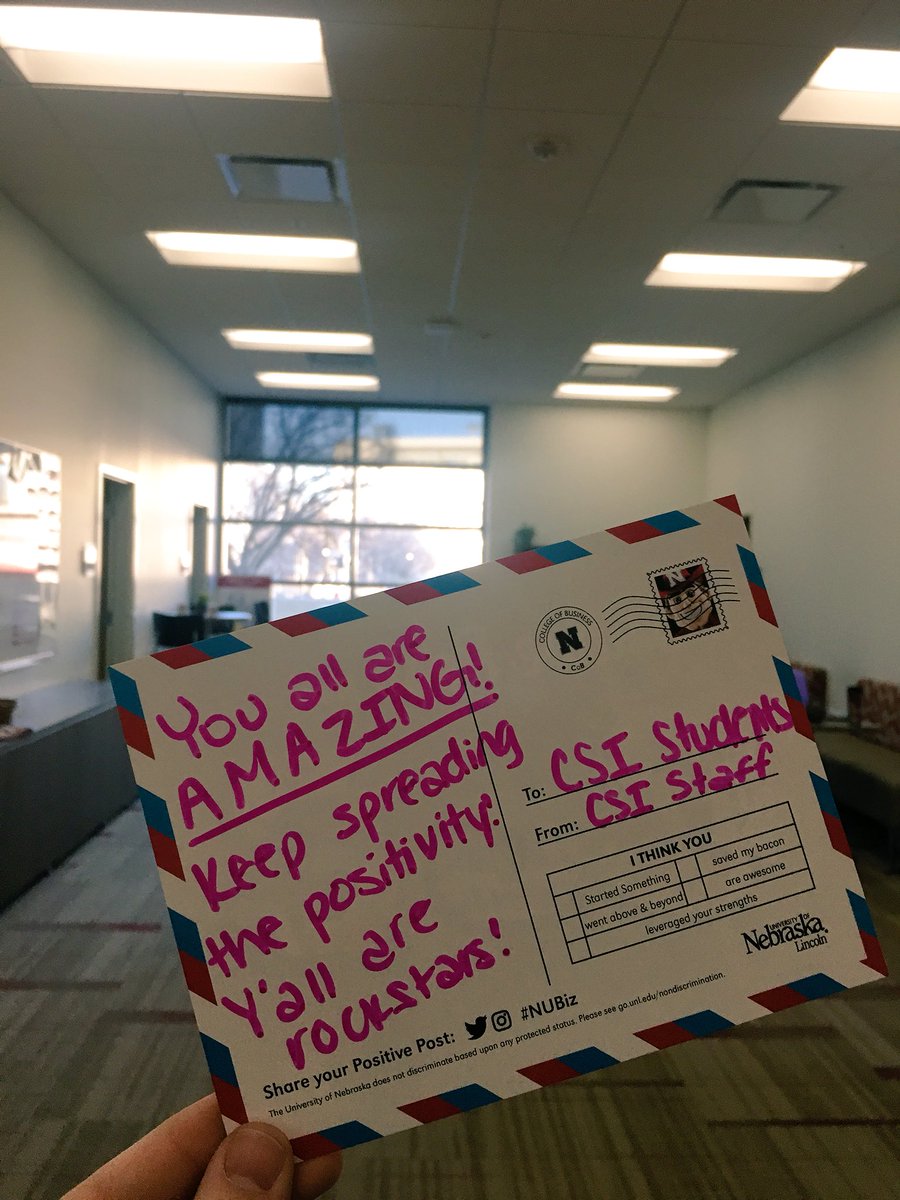 You all are
AMAZING!
Keep spreading
the positivity.
Y'all are
rockstars!
COLLEGE OF BUSINESS
N
CoB
N
To: CSI Students
From: CSI Staff
I THINK YOU
Started Something
saved my bacon
went above & beyond
are awesome
leveraged your strengths
UNIVERSITY OF
Nebraska
Lincoln
Share your Positive Post: #NUBiz
The University of Nebraska does not discriminate based upon any protected status. Please see go.unl.edu/nondiscrimination.